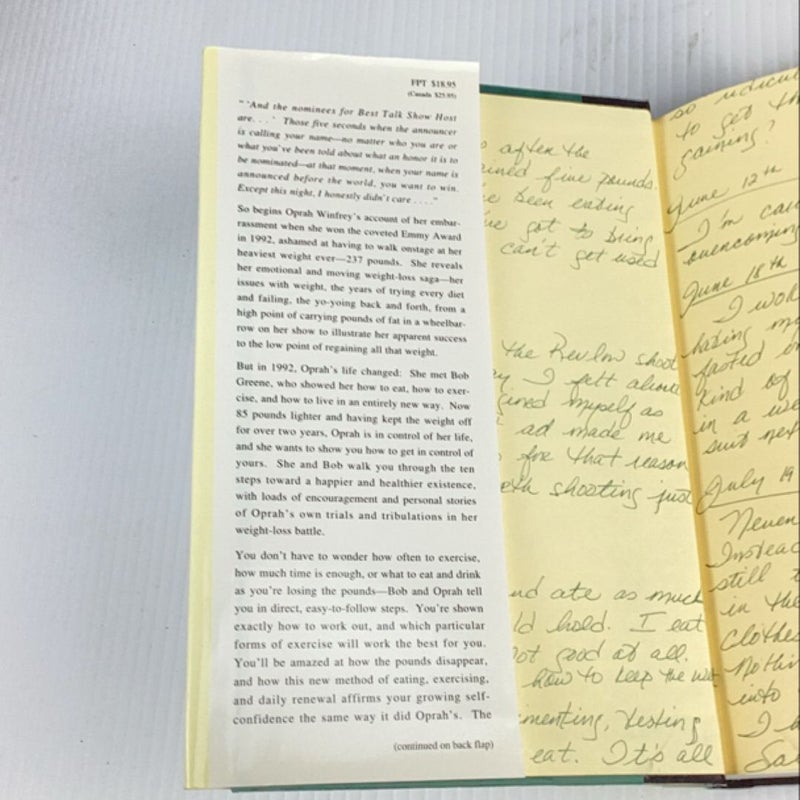 FPT $18.95
(Canada $25.95)
" 'And the nominees for Best Talk Show Host
are. . . ' Those five seconds when the announcer
is calling your name—no matter who you are or
what you've been told about what an honor it is to
be nominated—at that moment, when your name is
announced before the world, you want to win.
Except this night, I honestly didn't care . . . ."
So begins Oprah Winfrey's account of her embar-
rassment when she won the coveted Emmy Award
in 1992, ashamed at having to walk onstage at her
heaviest weight ever—237 pounds. She reveals
her emotional and moving weight-loss saga—her
issues with weight, the years of trying every diet
and failing, the yo-yoing back and forth, from a
high point of carrying pounds of fat in a wheelbar-
row on her show to illustrate her apparent success
to the low point of regaining all that weight.
But in 1992, Oprah's life changed: She met Bob
Greene, who showed her how to eat, how to exer-
cise, and how to live in an entirely new way. Now
85 pounds lighter and having kept the weight off
for over two years, Oprah is in control of her life,
and she wants to show you how to get in control of
yours. She and Bob walk you through the ten
steps toward a happier and healthier existence,
with loads of encouragement and personal stories
of Oprah's own trials and tribulations in her
weight-loss battle.
You don't have to wonder how often to exercise,
how much time is enough, or what to eat and drink
as you're losing the pounds—Bob and Oprah tell
you in direct, easy-to-follow steps. You're shown
exactly how to work out, and which particular
forms of exercise will work the best for you.
You'll be amazed at how the pounds disappear,
and how this new method of eating, exercising,
and daily renewal affirms your growing self-
confidence the same way it did Oprah's. The
(continued on back flap)
after the
ained five pounds.
've been eating
've got to bring
can't get used
the Revlon shoot
I felt alone
gined myself as
ad made me
for that reason
eth shooting just
nd ate as much
ld hold. I eat
ot good at all.
how to keep the wt
imenting, testing
eat. It's all
so ridicul
to get th
gaining?
June 12th
I'm cau
overcoming
June 18th
I wok
hating my
fasted
kind of
in a we
suit next
July 19
Never
Instead
still t
in the
clothes
Nothin
into
I
Sa